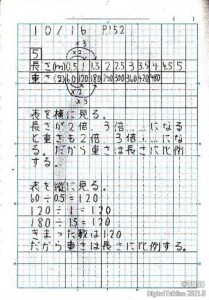 10/16 P152
×3
×2
5
長さ(m) 0.5 1 1.5 2 2.5 3 3.5 4 4.5 5
重さ(g) 60 120 180 240 300 360 420 480
×2
×3
表を横に見る。
長さが2倍、3倍...になる
と重さも2倍、3倍...にな
る。だから重さは長さに比例
する。
表を縦に見る。
60÷0.5=120
120÷1=120
180÷1.5=120
きまった数は120
だから重さは長さに比例する。